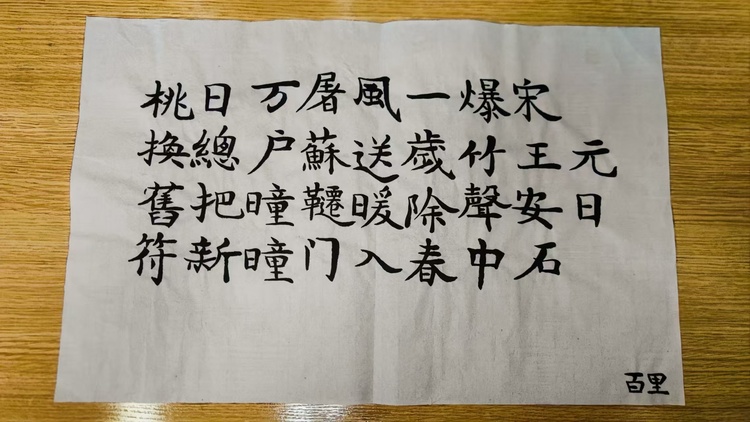 元日
宋王安石
爆竹聲中
一歲除春
風送暖入
屠蘇韆门
万户曈曈
日總把新
桃換舊符
百里